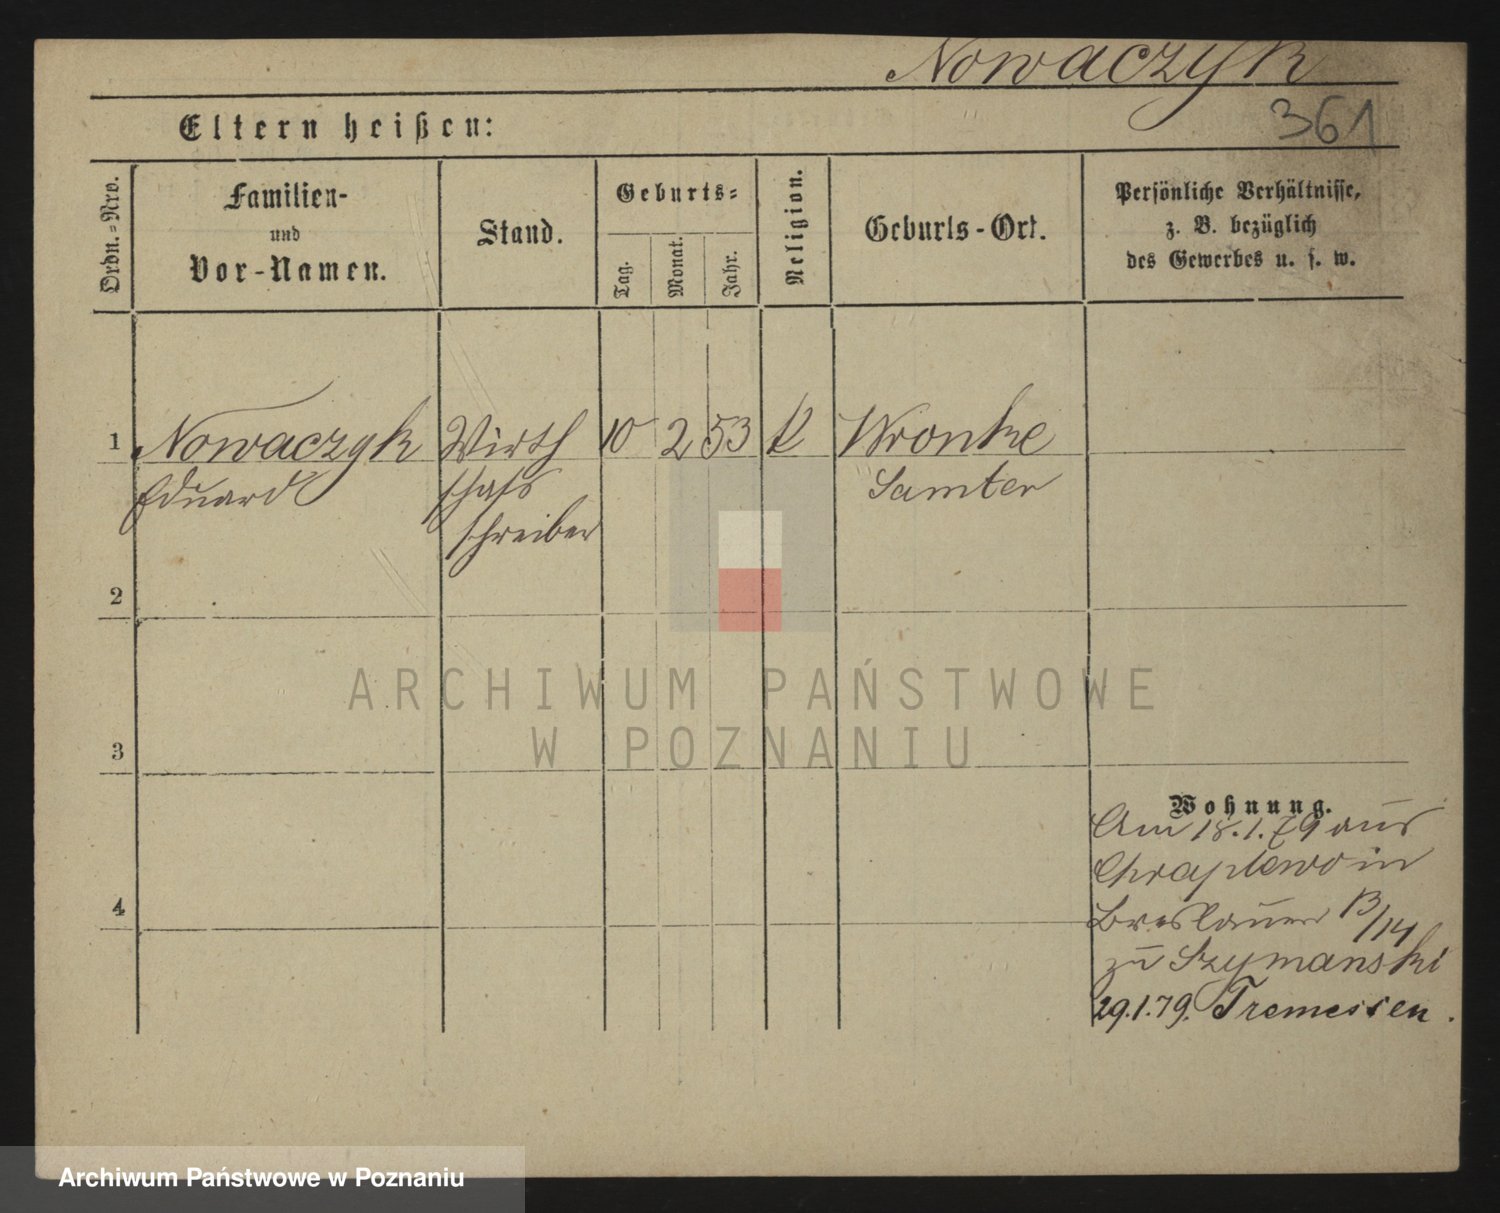 Nowaczyk
361
Eltern heißen:
Ordn.=Nro.
Familien-
und
Vor-Namen.
Stand.
Geburts=
Tag.
Monat.
Jahr.
Religion.
Geburts-Ort.
Persönliche Verhältnisse,
z. B. bezüglich
des Gewerbes u. s. w.
1 Nowaczyk Wirth 10 2 53 k Wronke
Eduard schafs Samter
schreiber
2
ARCHIWUM PAŃSTWOWE
W POZNANIU
3
Wohnung.
Am 18.1.79 aus
Chraplewo in
4
Breslauer 13/14
zu Szymanski
29.1.79. Tremessen.
Archiwum Państwowe w Poznaniu